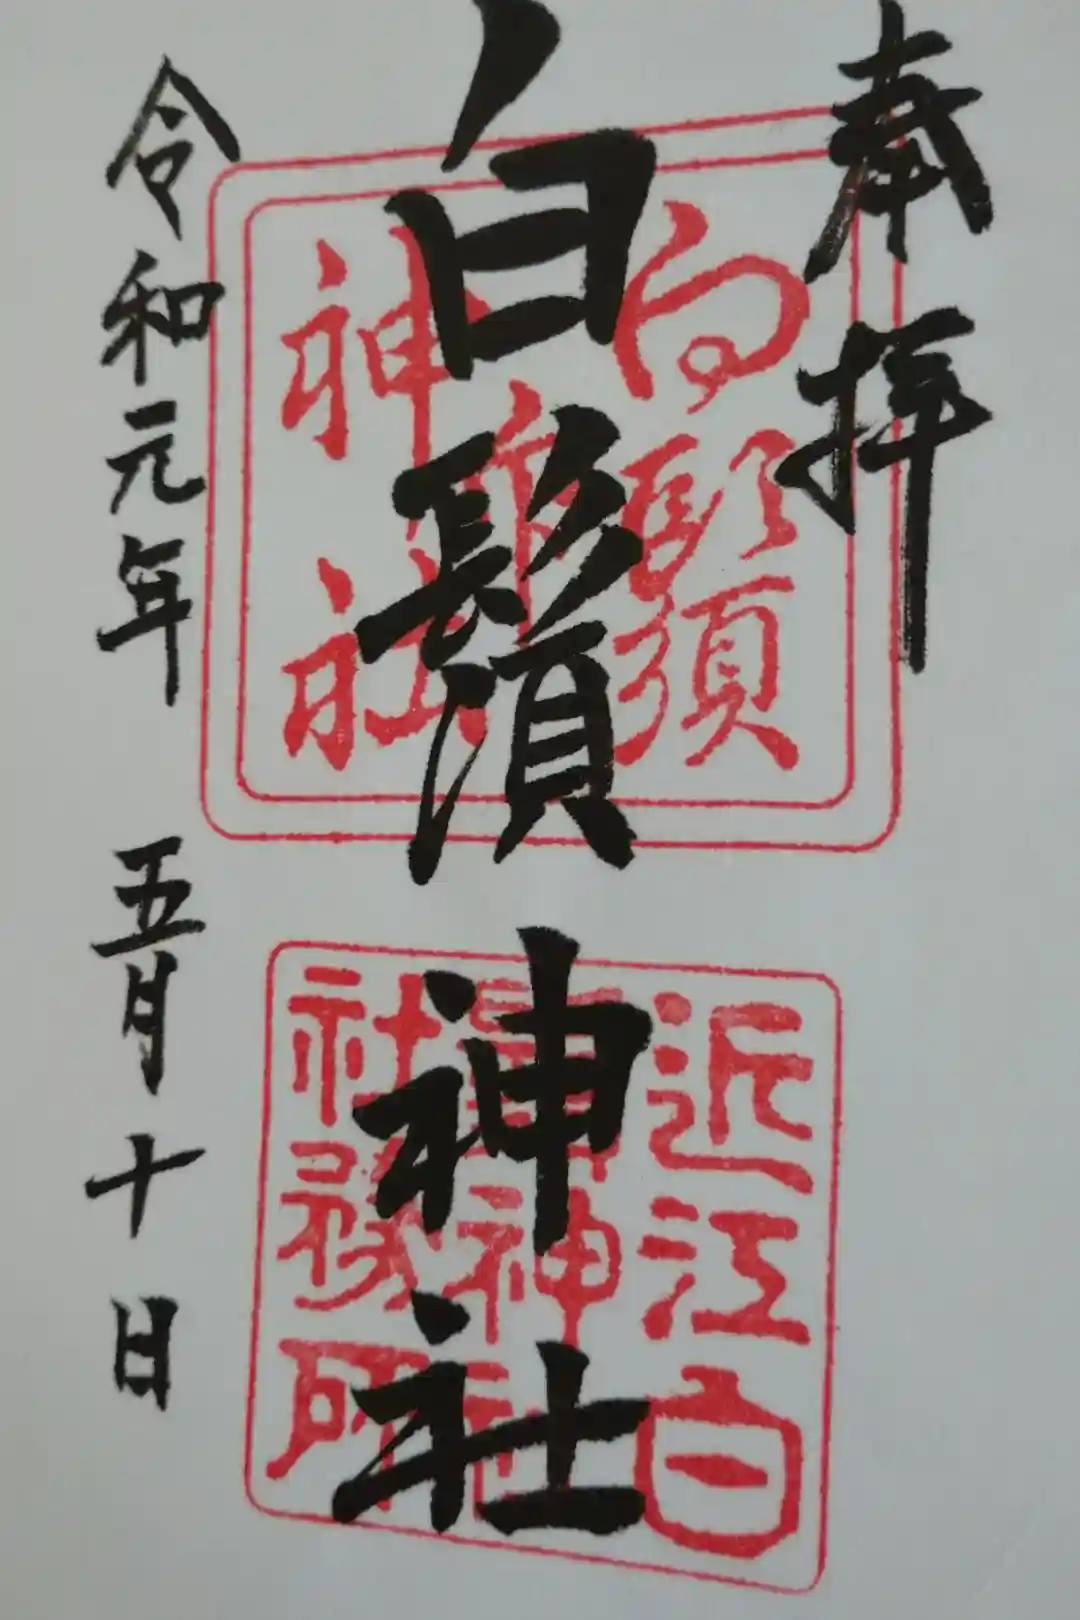 奉拝
白鬚神社
令和元年 五月十日
白鬚
神社
近江白
神社
社務所